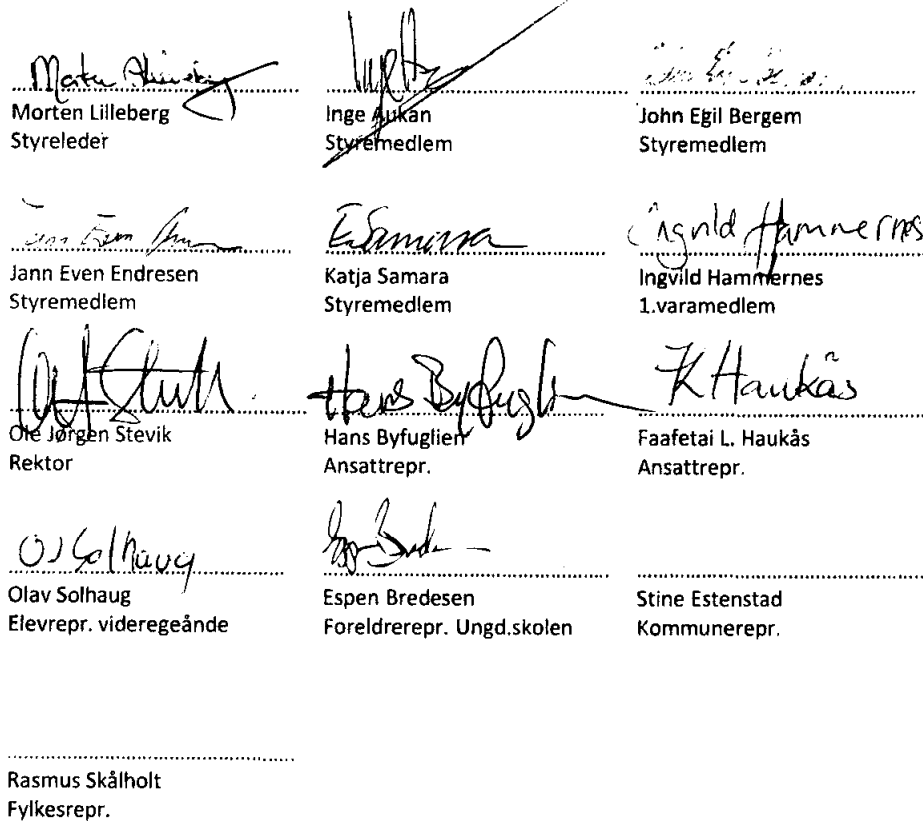 Morten Lilleberg
Styreleder
Inge Aukan
Styremedlem
John Egil Bergem
Styremedlem
Jann Even Endresen
Styremedlem
E Samara
Katja Samara
Styremedlem
Ingvild Hammernes
Ingvild Hammernes
1.varamedlem
Ole Jørgen Stevik
Rektor
Hans Byfuglien
Hans Byfuglien
Ansattrepr.
K Haukås
Faafetai L. Haukås
Ansattrepr.
OJ Solhaug
Olav Solhaug
Elevrepr. videregeånde
Espen Bredesen
Foreldrerepr. Ungd.skolen
Stine Estenstad
Kommunerepr.
Rasmus Skålholt
Fylkesrepr.